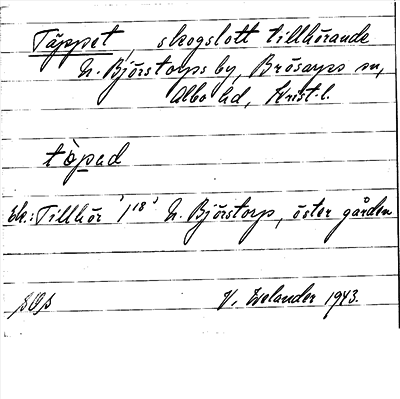 Täppet, skogslott tillhörande
N. Björstorps by, Brösarps sn,
Albo hd, Krist. l.
tòpad
Ek.: Tillhör 1¹⁸ N. Björstorp, öster gården
V. Welander 1943.